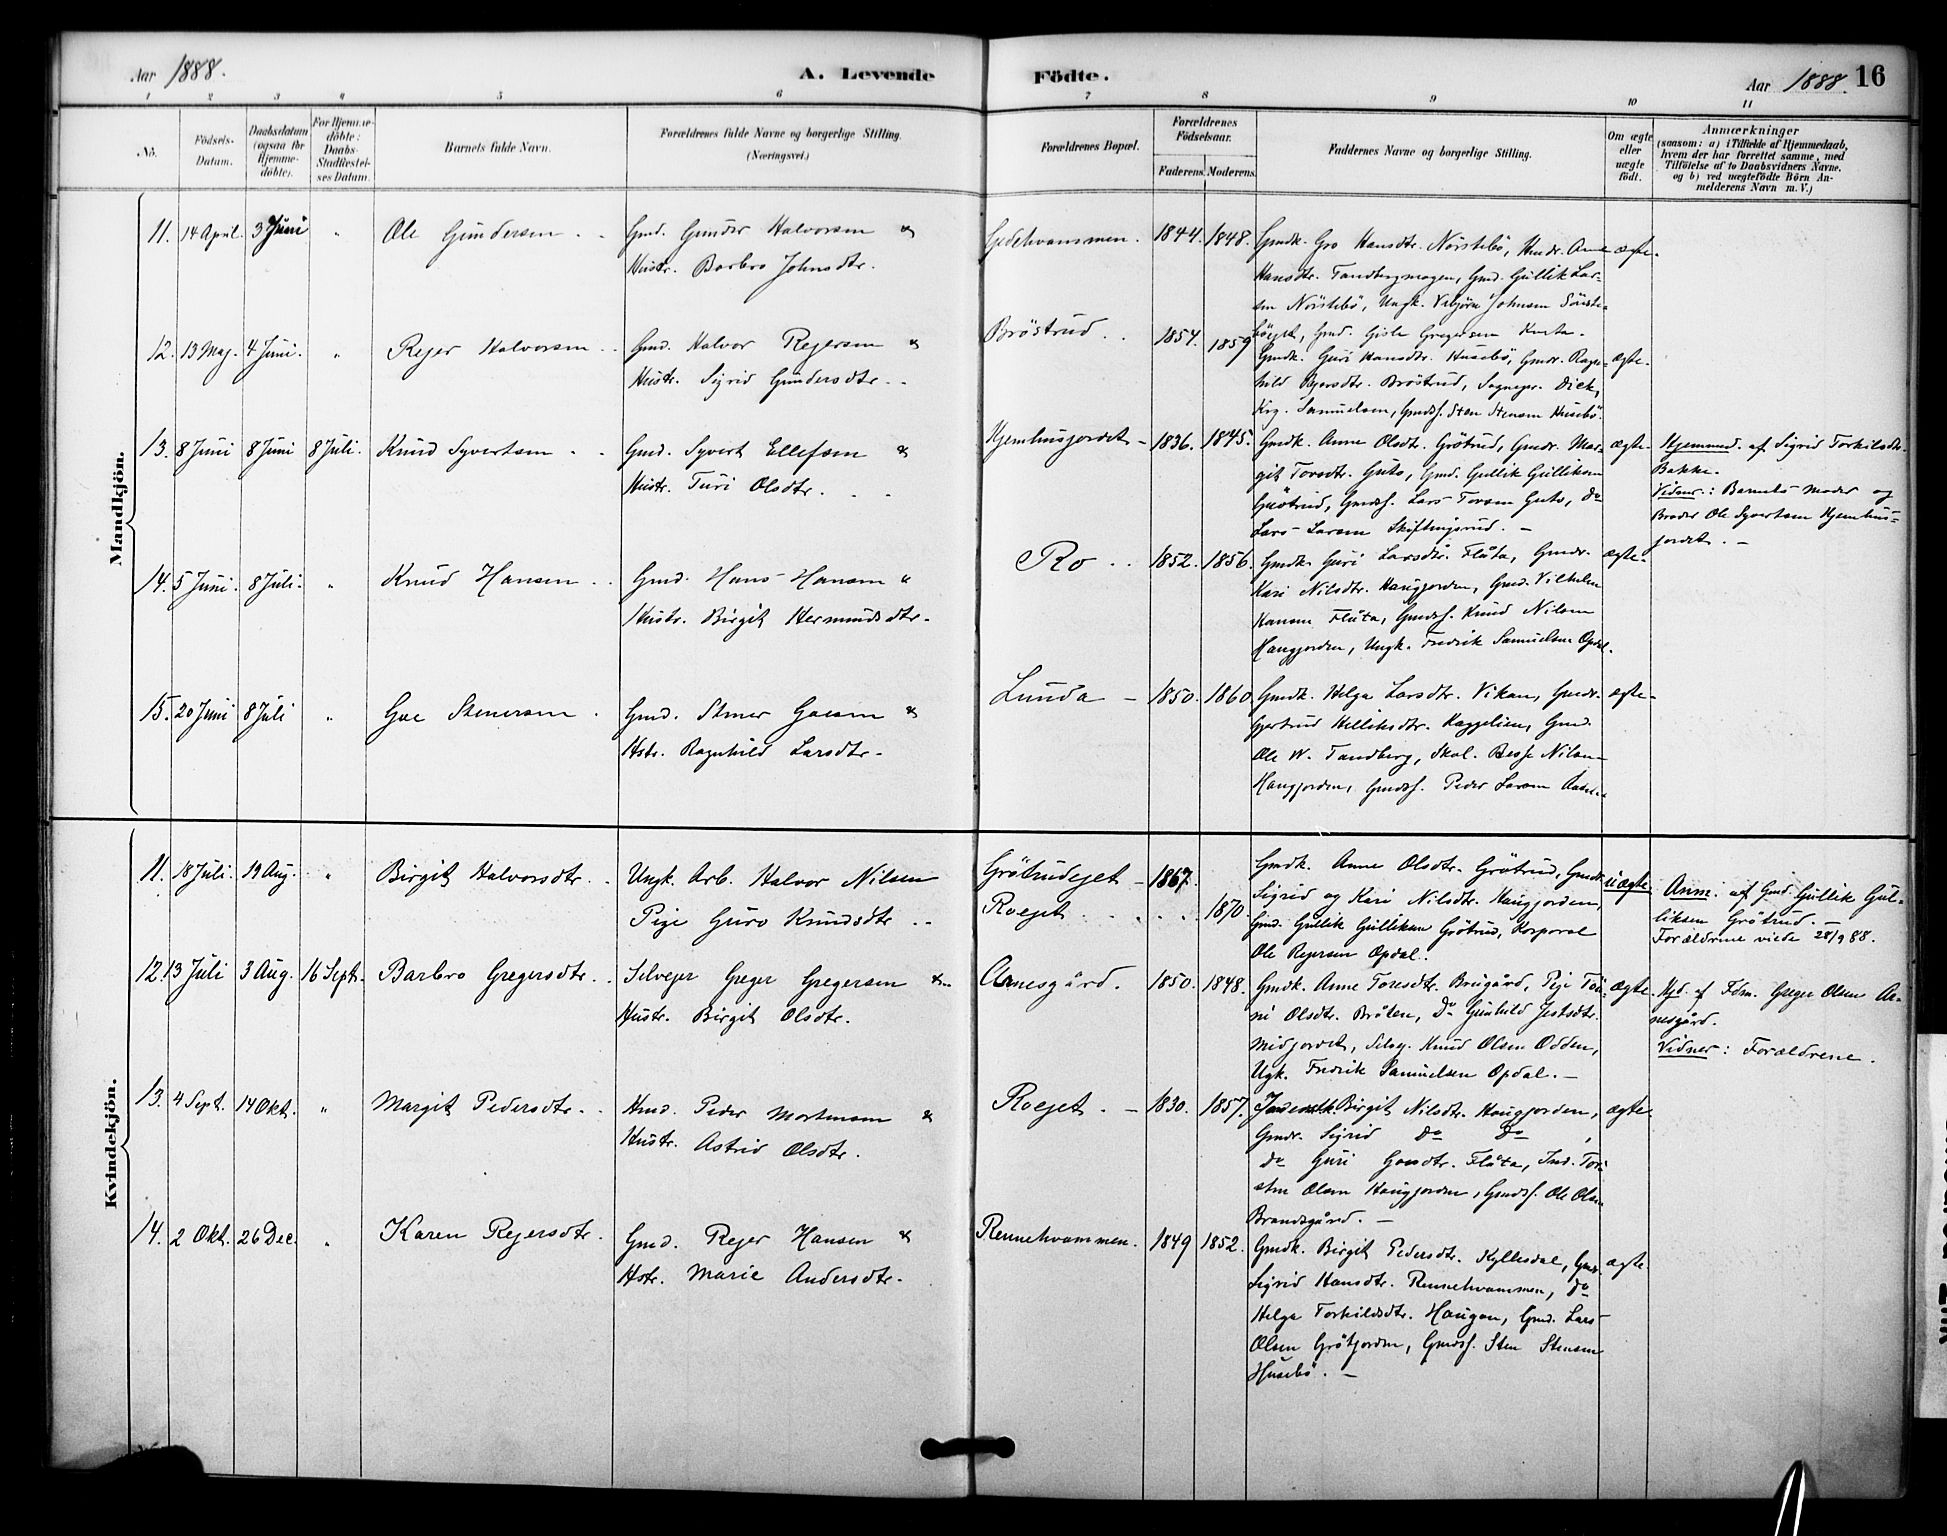 Aar 1888.
A. Levende Födte.
Aar 1888. 16
1 2 3 4 5 6 7 8 9 10 11
No.
Födsels-Datum.
Daabsdatum (ogsaa for Hjemmedöbte).
For Hjemmedöbte: Daabs-Stadfæstelses Datum.
Barnets fulde Navn.
Forældrenes fulde Navne og borgerlige Stilling. (Næringsvei.)
Forældrenes Bopæl.
Forældrenes Födselsaar.
Faderens. Moderens.
Faddernes Navne og borgerlige Stilling.
Om ægte eller uægte födt.
Anmærkninger
(saasom: a) i Tilfælde af Hjemmedaab, hvem der har forrettet samme, med Tilföielse af to Daabsvidners Navne. og b) ved uægtefödte Börn Anmelderens Navn m. V.)
Mandkjön.
11. 14 April. 3 Juni " Ole Gundersen
Gmd. Gunder Halvorsen &
Hustr. Barbro Johnsdtr.
Gjedehvammen. 1844. 1848.
Gmdk. Gro Hansdtr. Nörstebö, Husdr. Anne
Hansdtr. Tandbergmogen, Gmd. Gullik Lar-
sen Nörstebö, Ungk. Vebjörn Johnsen
Gmd. Gisle Gregersen
ægte.
12. 13 Maj. 4 Juni. " Rejer Halvorsen
Gmd. Halvor Rejersen &
Hustr. Sigrid Gundersdtr.
Bröstrud 1854. 1859
Gmdk. Guri Hansdtr. Husebö, Gmdr. Ragn-
hild Rejersdtr. Bröstrud, Sogneprs. Dick,
Kirg. Samuelsen, Gmdss. Sten Stensen Husebö.
ægte.
13. 8 Juni 8 Juni 8 Juli. Knud Syvertsen
Gmd. Syvert Ellefsen &
Hustr. Turi Olsdtr.
Hjemhusjordet 1836. 1845.
Gmdk. Anne Olsdtr. Grötrud, Gmdr. Mar-
git Tovsdtr. Guto, Gmd. Gullik Gulliksen
Grötrud, Gmdss. Lars Tovsen Guto, do
Lars Larsen Skiftingsrud. –
ægte
Hjemmed. af Sigrid Torkildsdtr.
Bakke.
Vidner: Barnets Moder og
Broder Ole Syvertsen Hjemhus-
jordet. –
14. 5 Juni. 8 Juli. " Knud Hansen
Gmd. Hans Hansen "
Hustr. Birgit Hermundsdtr.
Ro 1852. 1856.
Gmdk. Guri Larsdtr. Flåta, Gmdr.
Kari Nilsdtr. Haugjorden, Gmd. Vilhelm
Hansen Flåta, Gmdss. Knud Nilsen
Haugjorden, Ungk. Fredrik Samuelsen Opdal.
ægte
15. 20 Juni 8 Juli " Goe Stenersen
Gmd. Stener Goesen &
Hstr. Ragnhild Larsdtr.
Lunda – 1850. 1860
Gmdk. Helga Larsdtr. Vikan, Gmdr.
Gjertrud Killiksdtr. Kaggelien, Gmd.
Ole W. Tandberg, Skol. Besse Nilsen
Haugjorden, Gmdss. Peder Larsen
ægte
Kvindekjön.
11. 18 Juli. 19 Aug. " Birgit Halvorsdtr.
Ungk. Arb. Halvor Nilsen
Pige Guro Knudsdtr
Grötrudejet – 1867.
Roejet 1870
Gmdk. Anne Olsdtr. Grötrud, Gmdk.
Sigrid og Kari Nilsdtr. Haugjorden,
Gmd. Gullik Gulliksen Grötrud, Korporal
Ole Rejersen Opdal.
uægte
Anm. af Gmd. Gullik Gul-
liksen Grötrud. –
Forældrene viede 28/9 88.
12. 13 Juli 3 Aug. 16 Sept. Barbro Gregersdtr.
Selvejer Greger Gregersen &
Hustr. Birgit Olsdtr.
Arnesgård. 1850. 1848.
Gmdk. Anne Toresdtr. Brugård, Pige Tön-
ni Olsdtr. Bråten, Do Gunhild Jestsdtr.
Midjordet, Selvej. Knud Olsen Odden,
Ugk. Fredrik Samuelsen Opdal. –
ægte
Hjd. af Fdm. Greger Olsen Ar-
nesgård.
Vidner: Forældrene.
13. 4 Sept. 14 Okt. " Margit Pedersdtr.
Hmd. Peder Mortensen &
Hustr. Astrid Olsdtr.
Roejet. – 1830. 1857.
Birgit Nilsdtr. Haugjorden,
Gmdr. Sigrid do Do,
do Guri Goesdtr. Flåta, Ind. Tor-
sten Olsen Haugjorden, Gmdss. Ole Olsen
Brandsgård. –
ægte
14. 2 Okt. 26 Dec. " Karen Rejersdtr.
Gmd. Rejer Hansen &
Hstr. Marie Andersdtr.
Rennehvammen. 1849 1852.
Gmdk. Birgit Pedersdtr. Kyllesdal, Gmdr.
Sigrid Hansdtr. Rennehvammen, do
Helga Torkildsdtr. Haugen, Gmd. Lars
Olsen Grötjorden, Gmdss. Sten Stensen
Husebö. –
ægte